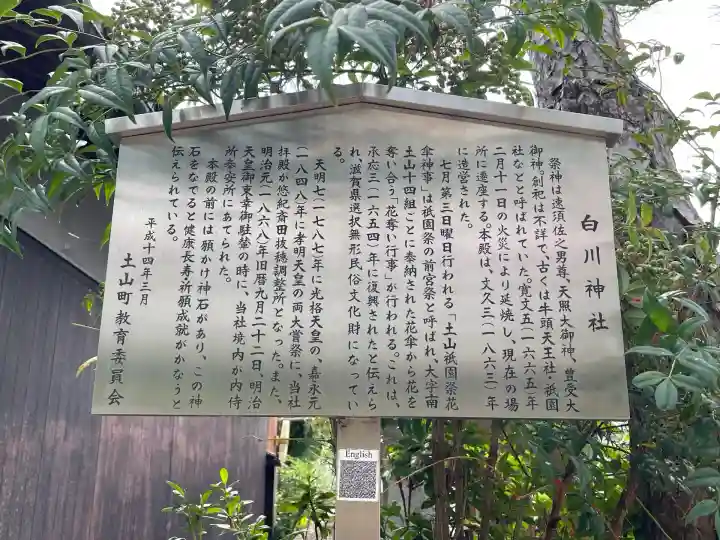 白川神社
祭神は速須佐之男尊、天照大御神、豊受大
御神。創祀は不詳で、古くは牛頭天王社、祇園
社などと呼ばれていた。寛文五(一六六五)年
二月十一日の火災により延焼し、現在の場
所に遷座する。本殿は、文久三(一八六三)年
に造営された。
七月第三日曜日行われる「土山祇園祭花
傘神事」は祇園祭の前宮祭と呼ばれ、大字南
土山十四組ごとに奉納された花傘から花を
奪い合う「花奪い行事」が行われる。これは、
承応三(一六五四)年に復興されたと伝えら
れ、滋賀県選択無形民俗文化財になってい
る。
天明七(一七八七)年に光格天皇の、嘉永元
(一八四八)年に孝明天皇の両大嘗祭に、当社
拝殿が悠紀斎田抜穂調整所となった。また、
明治元(一八六八)年旧暦九月二十二日、明治
天皇御東幸御駐禁の時に、当社境内が内侍
所奉安所にあてられた。
本殿の前には願かけ神石があり、この神
石をなでると健康長寿・祈願成就がかなうと
伝えられている。
平成十四年三月
土山町教育委員会
English